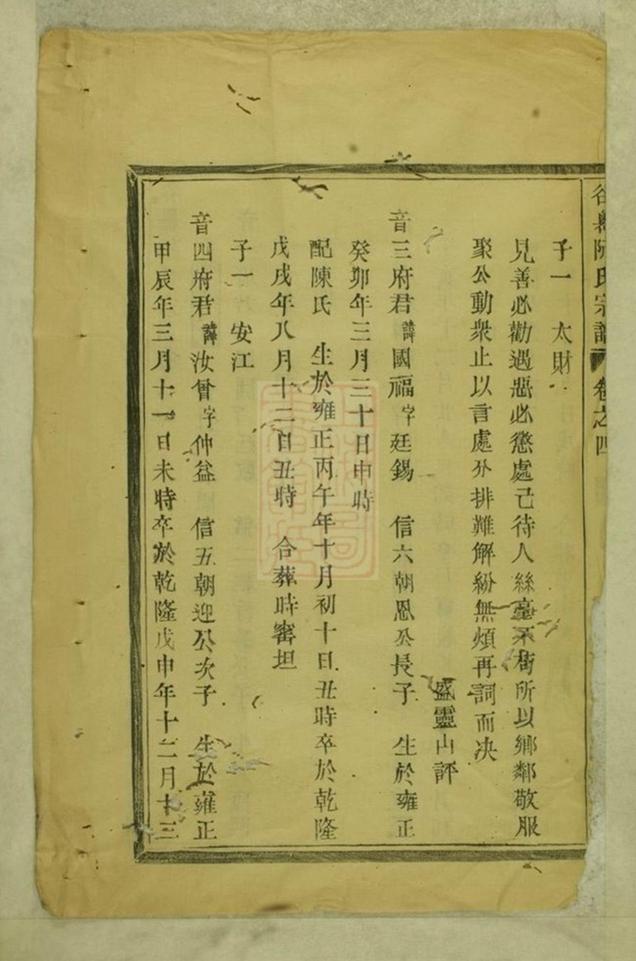 陳氏宗譜 卷之四
子一 太財
見善必勸遇惡必懲處己待人絲毫不苟所以鄉鄰敬服
聚公動衆止以言處分排難解紛無煩再詞而决
盛靈山評
音三府君諱國福字廷錫 信六朝恩公長子 生於雍正
癸卯年三月三十日申時
配陳氏 生於雍正丙午年十月初十日丑時卒於乾隆
戊戌年八月十二日丑時 合葬時審坦
子一 安江
音四府君諱汝曾字仲益 信五朝迎公次子 生於雍正
甲辰年三月十一日未時卒於乾隆戊申年十二月十三